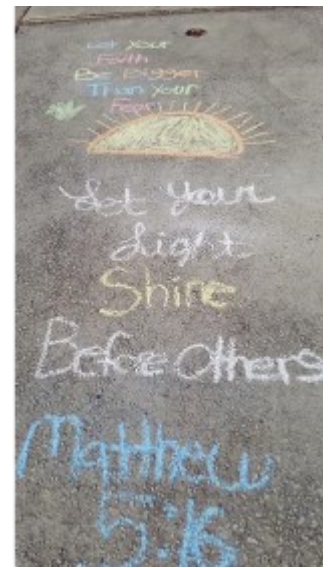 Let Your
Faith
Be Bigger
Than Your
Fear
Let Your
Light
Shine
Before Others
Matthew
5:16